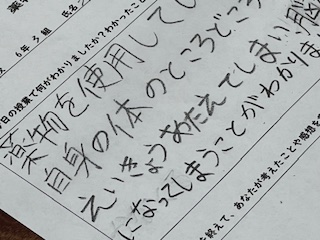 薬
6年3組 氏名
日の授業で何がわかりましたか?わかったこと
薬物を使用してし
自身の体のところどころ
えいきょうあたえてしまい脳
になってしまうことがわかりま
を終えて、あなたが考えたことや感想を